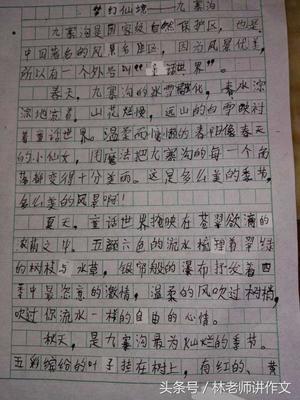 梦幻仙境——九寨沟
九寨沟是国家级自然保护区，也是
中国著名的风景名胜区，因为风景优美，
所以有一个外号叫“童话世界”。
春天，九寨沟的冰雪融化，春水淙
淙地流着，山花烂漫，远山的白雪映衬
着童话世界。温柔而慵懒的春阳像春天
的小仙女，用魔法把九寨沟的每一个角
落都变得十分美丽。这是多么美的季节，
多么美的风景啊！
夏天，童话世界掩映在苍翠欲滴的
浓荫之中。五颜六色的流水梳理着翠绿
的树枝与水草，银帘般的瀑布抒发着四
季中最恣意的激情，温柔的风吹过树梢，
吹过你流水一样的自由的心情。
秋天，是九寨沟最为灿烂的季节。
五彩缤纷的叶子挂在树上，有红的、黄
头条号/林老师讲作文